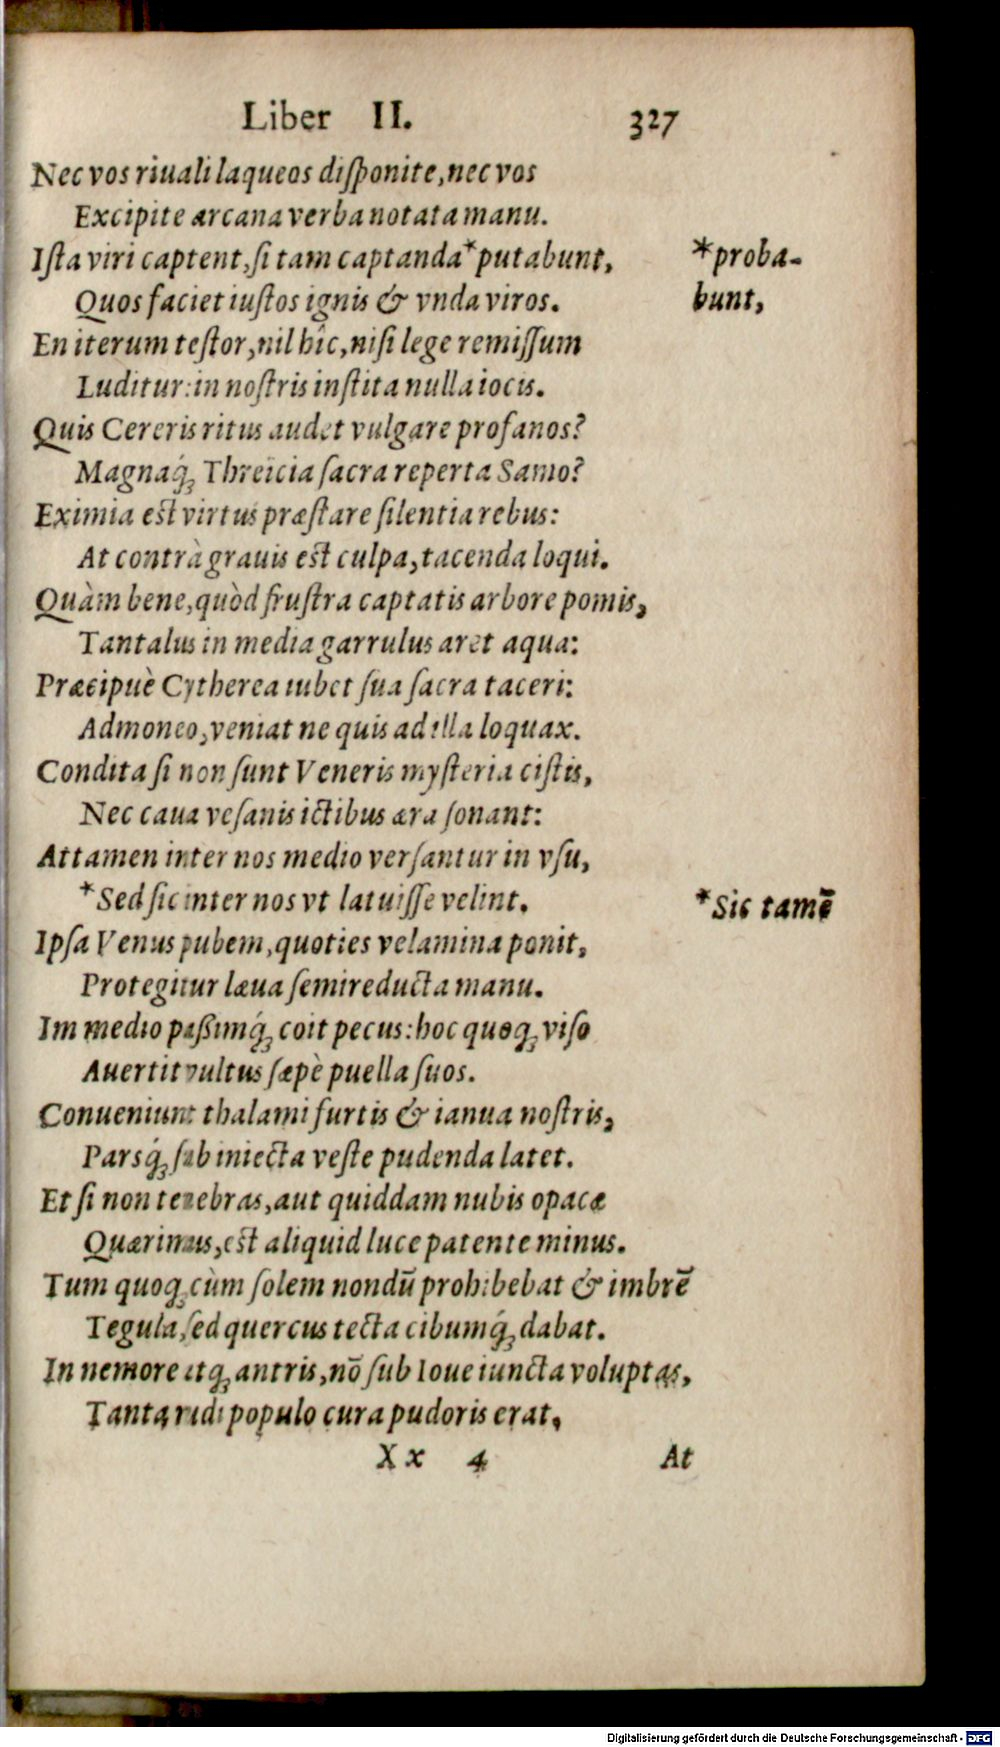 Liber II. 327
Nec vos riuali laqueos disponite, nec vos
Excipite arcana verba notata manu.
Ista viri captent, si tam captanda *putabunt,
*proba-
Quos faciet iustos ignis & vnda viros.
bunt,
En iterum testor, nil hîc, nisi lege remissum
Luditur: in nostris instita nulla iocis.
Quis Cereris ritus audet vulgare profanos?
Magnaq́; Threïcia sacra reperta Samo?
Eximia est virtus præstare silentia rebus:
At contrà grauis est culpa, tacenda loqui.
Quàm bene, quòd frustra captatis arbore pomis,
Tantalus in media garrulus aret aqua:
Præcipuè Cytherea iubet sua sacra taceri:
Admoneo, veniat ne quis ad illa loquax.
Condita si non sunt Veneris mysteria cistis,
Nec caua vesanis ictibus æra sonant:
Attamen inter nos medio versantur in vsu,
*Sed sic inter nos vt latuisse velint.
*Sic tamē
Ipsa Venus pubem, quoties velamina ponit,
Protegitur læua semireducta manu.
Im medio paßimq́; coit pecus: hoc quoq; viso
Auertit vultus sæpè puella suos.
Conueniunt thalami furtis & ianua nostris,
Parsq́; sub iniecta veste pudenda latet.
Et si non tenebras, aut quiddam nubis opacæ
Quærimus, est aliquid luce patente minus.
Tum quoq; cùm solem nondū prohibebat & imbrē
Tegula, sed quercus tecta cibumq́; dabat.
In nemore atq; antris, nō sub Ioue iuncta voluptas,
Tanta rudi populo cura pudoris erat,
X x 4 At
Digitalisierung gefördert durch die Deutsche Forschungsgemeinschaft - DFG